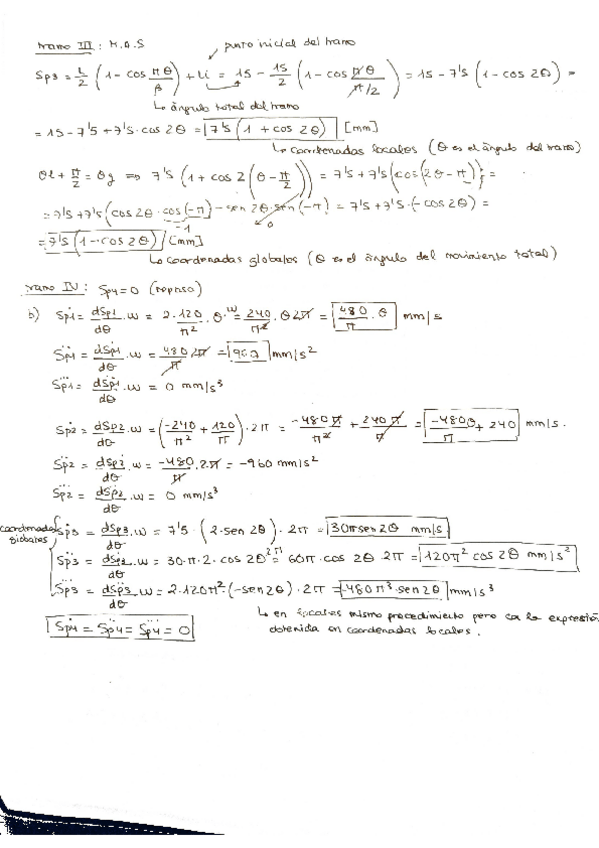 tramo III : M.A.S punto inicial del tramo
Sp3 = L/2 (1 - cos πθ/β) + Li = 15 - 15/2 (1 - cos πθ/π/2) = 15 - 7'5 (1 - cos 2θ) =
↳ ángulo total del tramo
= 15 - 7'5 + 7'5 · cos 2θ = 7'5 (1 + cos 2θ) [mm]
↳ coordenadas locales (θ es el ángulo del tramo)
θl + π/2 = θg ⇒ 7'5 (1 + cos 2(θ - π/2)) = 7'5 + 7'5 (cos(2θ - π)) =
= 7'5 + 7'5 (cos 2θ · cos(-π) - sen 2θ · sen(-π)) = 7'5 + 7'5 · (- cos 2θ) =
-1 0
= 7'5 (1 - cos 2θ) [mm]
↳ coordenadas globales (θ es el ángulo del movimiento total)
tramo IV : Sp4 = 0 (reposo)
b) Ṡp1 = dSp1/dθ · w = 2·120/π² · θ · w = 240/π² · θ 2π = 480/π · θ mm/s
S̈p1 = dṠp1/dθ · w = 480/π 2π = 960 mm/s²
S⃛p1 = dS̈p1/dθ · w = 0 mm/s³
Ṡp2 = dSp2/dθ · w = (-240/π² + 120/π) · 2π = -480π/π² + 240π/π = -480θ/π + 240 mm/s.
S̈p2 = dṠp2/dθ · w = -480/π · 2π = -960 mm/s²
S⃛p2 = dS̈p2/dθ · w = 0 mm/s³
coordenadas globales Ṡp3 = dSp3/dθ · w = 7'5 · (2·sen 2θ) · 2π = 30π sen 2θ mm/s
S̈p3 = dṠp3/dθ · w = 30·π·2·cos 2θ · 2π = 60π·cos 2θ 2π = 120π² cos 2θ mm/s²
S⃛p3 = dS̈p3/dθ · w = 2·120π²·(-sen 2θ)·2π = -480π³·sen 2θ mm/s³
↳ en locales mismo procedimiento pero con la expresión
obtenida en coordenadas locales.
Ṡp4 = S̈p4 = S⃛p4 = 0